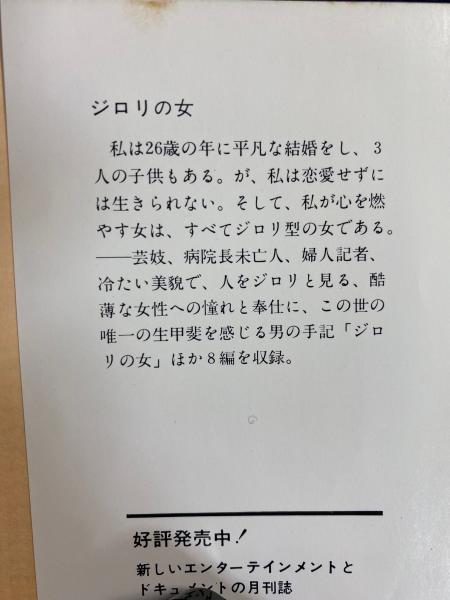 ジロリの女
私は26歳の年に平凡な結婚をし、3
人の子供もある。が、私は恋愛せずに
は生きられない。そして、私が心を燃
やす女は、すべてジロリ型の女である。
――芸妓、病院長未亡人、婦人記者、
冷たい美貌で、人をジロリと見る、酷
薄な女性への憧れと奉仕に、この世の
唯一の生甲斐を感じる男の手記「ジロ
リの女」ほか8編を収録。
好評発売中!
新しいエンターテインメントと
ドキュメントの月刊誌